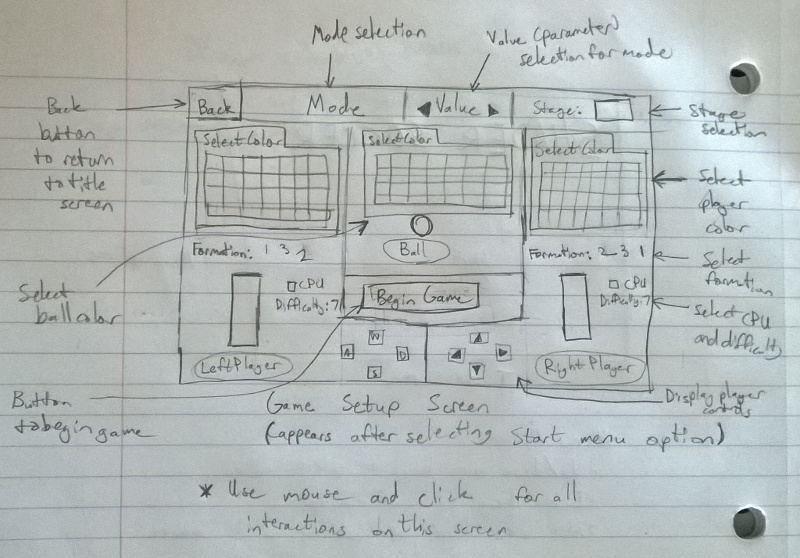 Mode selection
Value (parameter)
selection for mode
Back
button
to return
to title
screen
Back
Mode
◀ Value ▶
Stage:
Stage
selection
Select Color
Select Color
Select Color
Select
player
color
Formation: 1 3 2
Ball
Formation: 2 3 1
Select
formation
Select
ball color
CPU
Difficulty: 7
Begin Game
CPU
Difficulty: 7
Select CPU
and difficulty
Left Player
W
A
D
S
▲
◀ ▶
▼
Right Player
Button
to begin game
Display player
controls
Game Setup Screen
(appears after selecting Start menu option)
* Use mouse and click for all
interactions on this screen